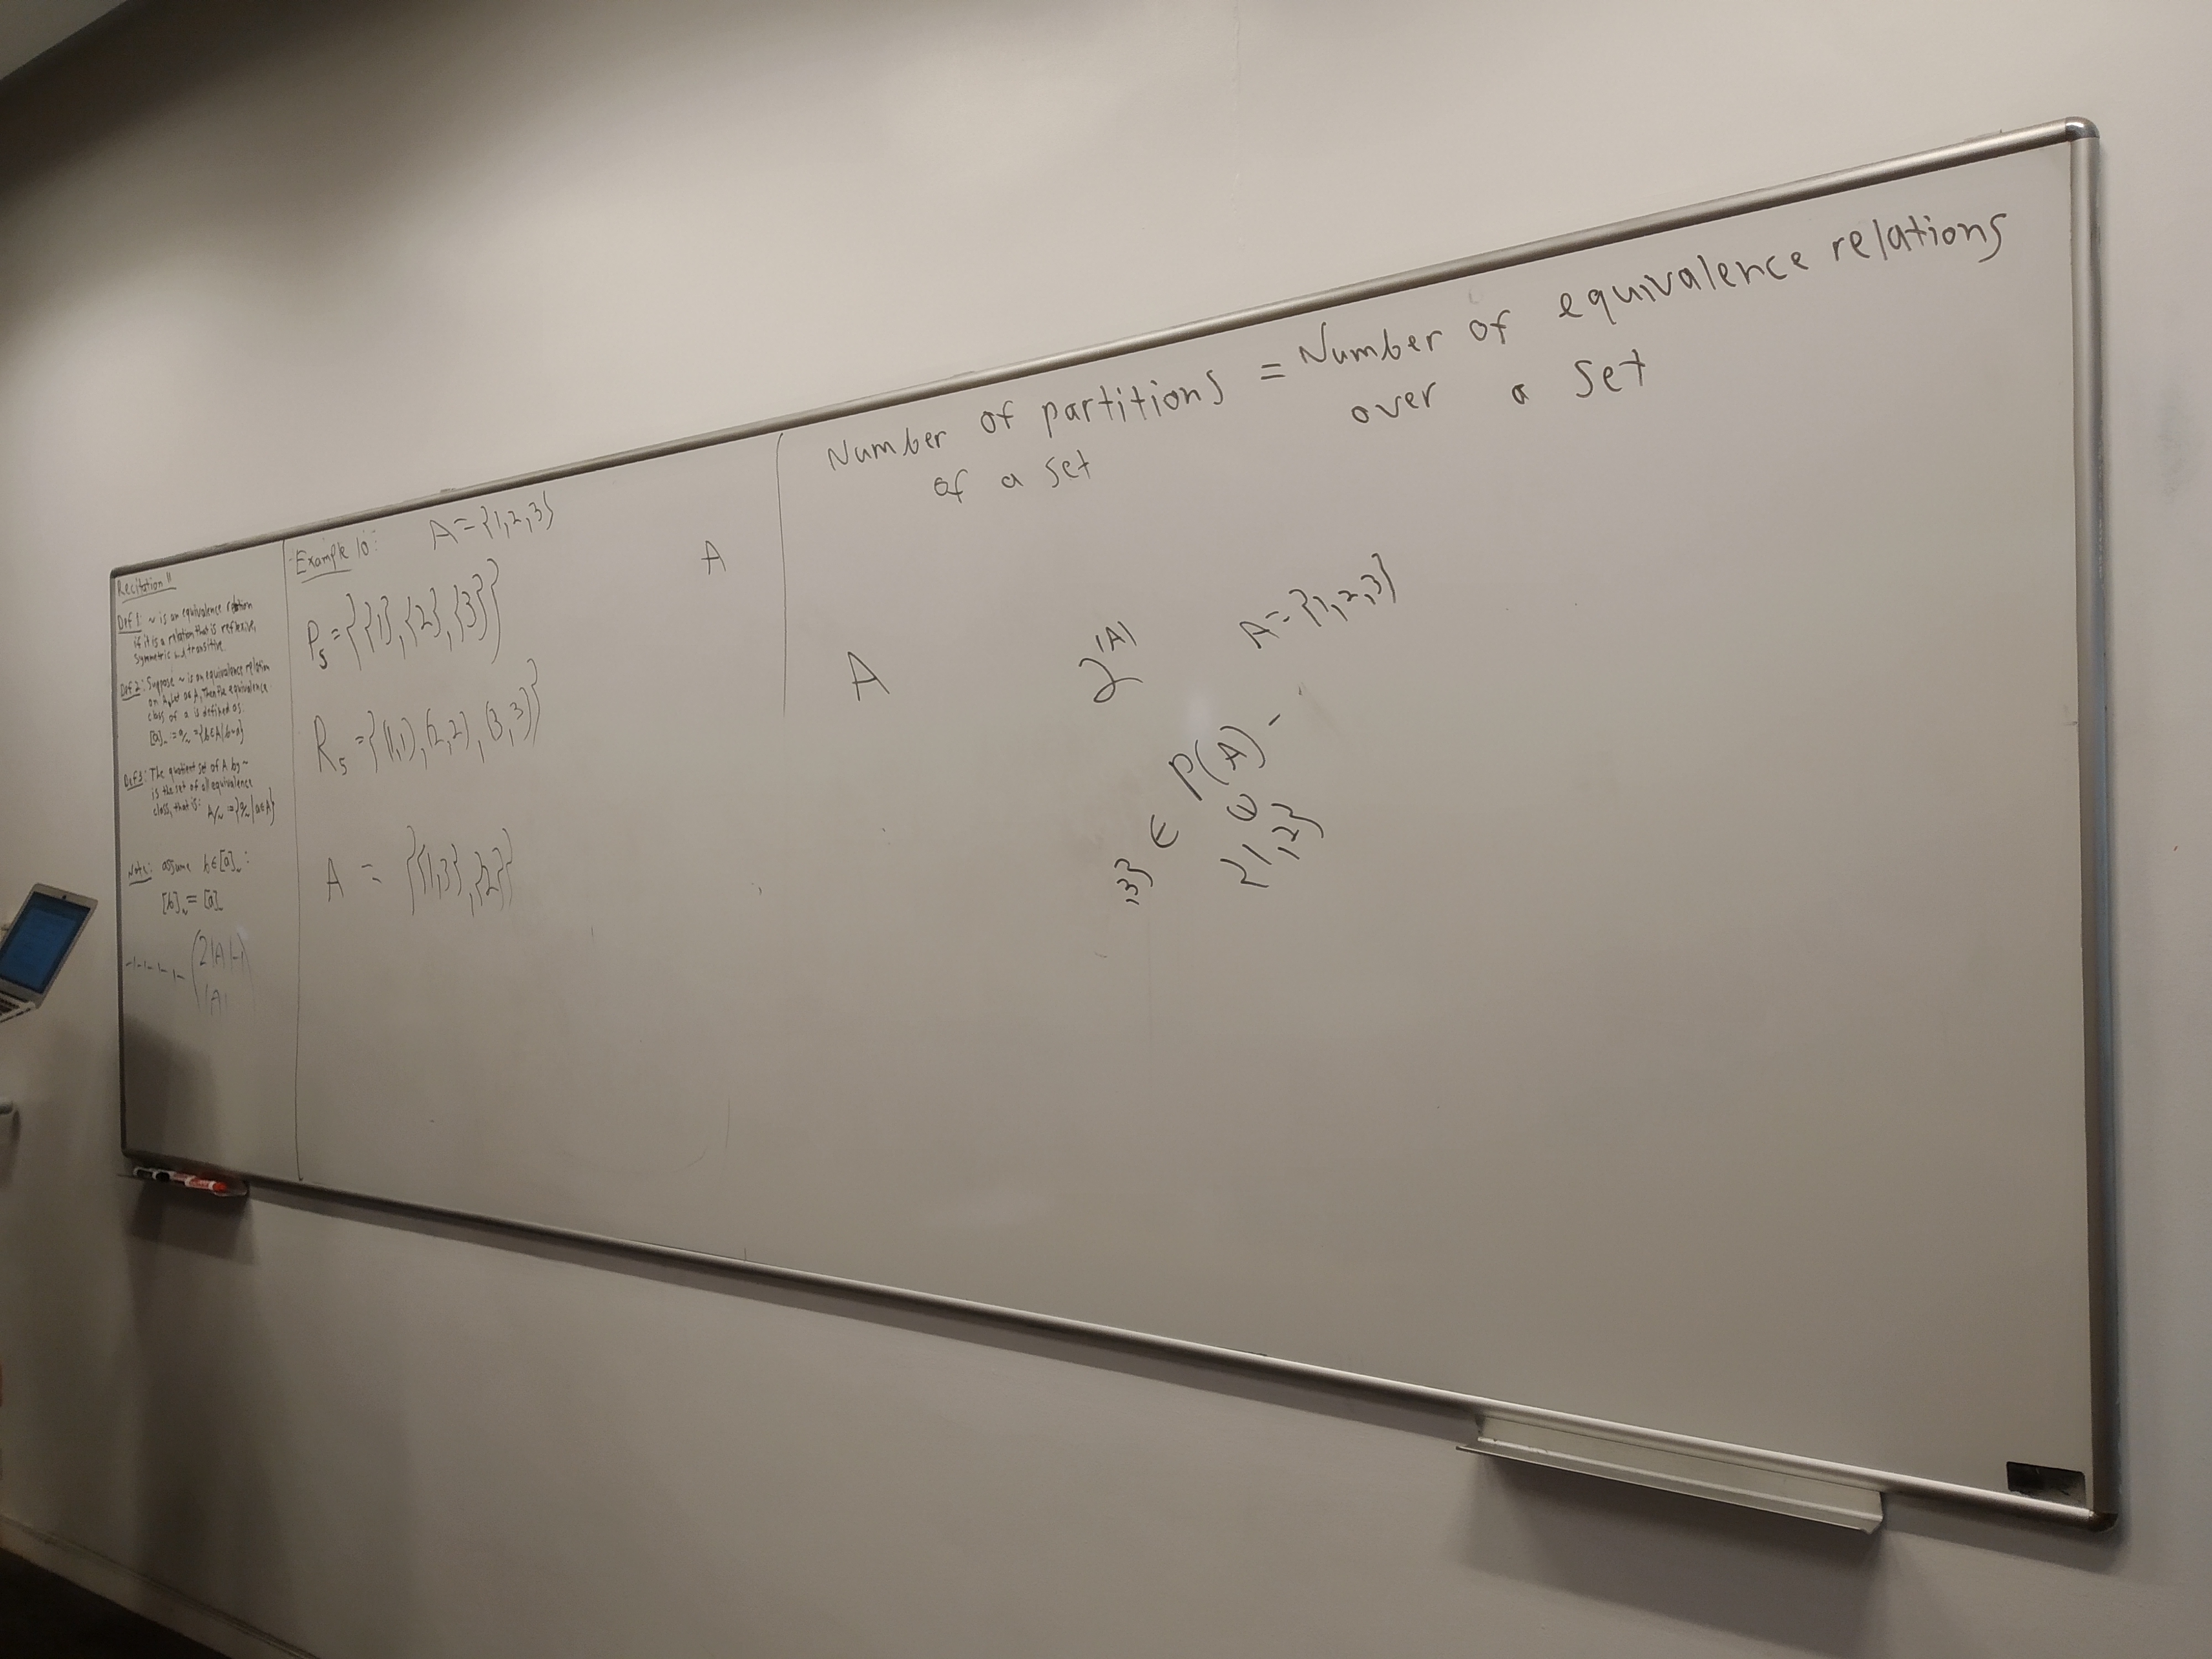 Recitation 11
Def 1: ~ is an equivalence relation
if it is a relation that is reflexive,
symmetric and transitive.
Def 2: Suppose ~ is an equivalence relation
on A, let a∈A, Then the equivalence
class of a is defined as:
[a]~ = a/~ = {b∈A | b~a}
Def 3: The quotient set of A by ~
is the set of all equivalence
class, that is: A/~ = {a/~ | a∈A}
Note: assume b∈[a]~:
[b]~ = [a]~
(2|A|-1
|A|
Example 10: A={1,2,3}
P₅={{1},{2},{3}}
R₅={(1,1),(2,2),(3,3)}
A = {{1,3},{2}}
A
Number of partitions = Number of equivalence relations
of a set over a set
A 2^|A| A={1,2,3}
P(A) -
,3} ∈
{1,2}